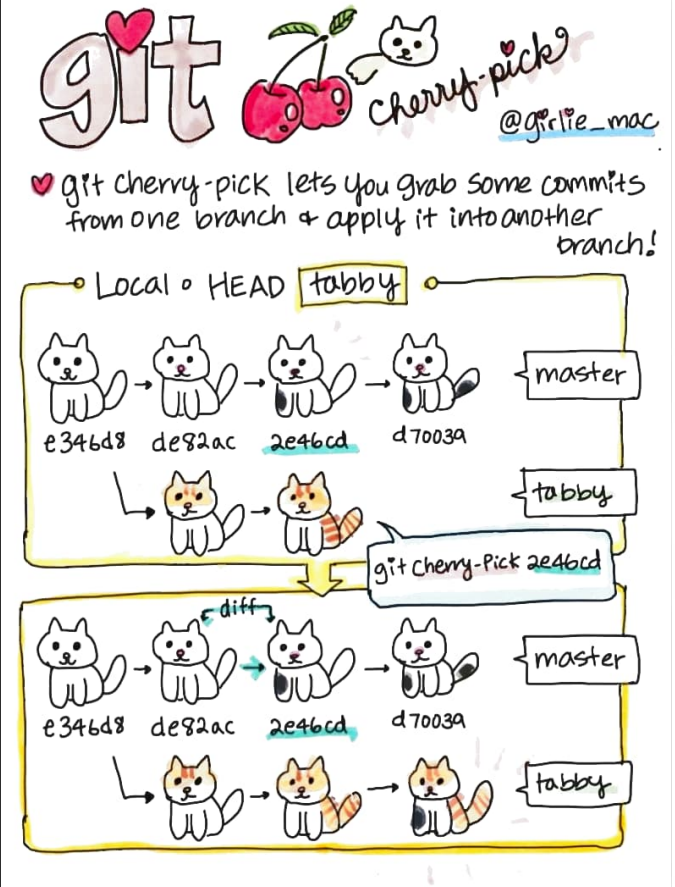 git
cherry-pick
@girlie_mac
git cherry-pick lets you grab some commits
from one branch & apply it into another
branch!
Local HEAD tabby
master
e346d8 de82ac 2e46cd d7003a
tabby
git cherry-Pick 2e46cd
diff
master
e346d8 de82ac 2e46cd d7003a
tabby